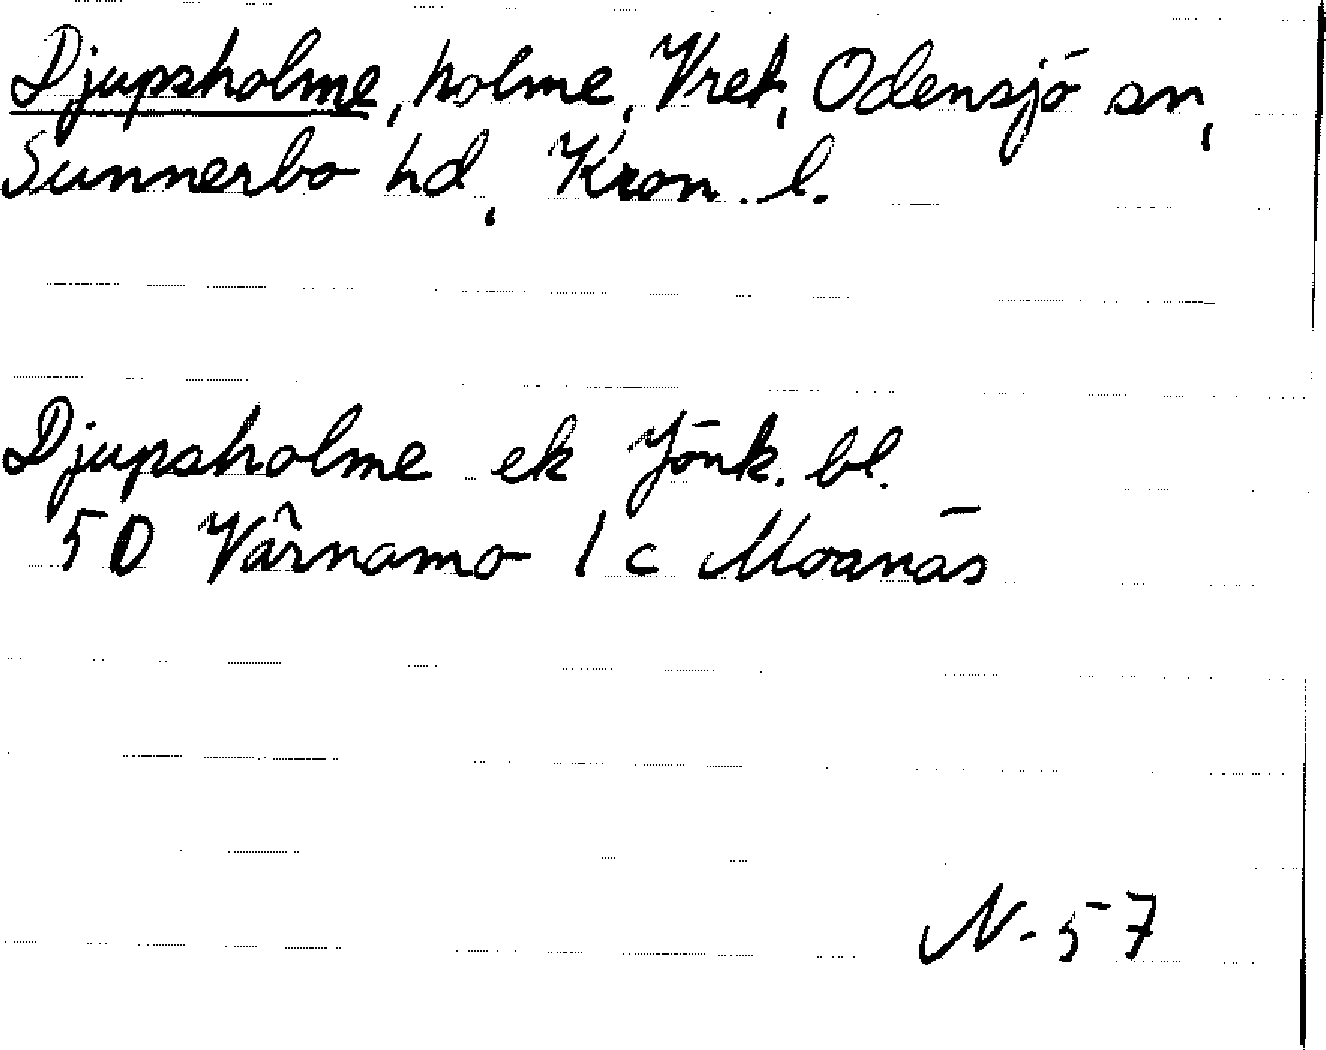 Djupsholme, holme, Vret, Odensjö sn,
Sunnerbo hd, Kron. l.
Djupsholme ek Jönk. bl.
5D Värnamo 1 c Moanäs
N-57